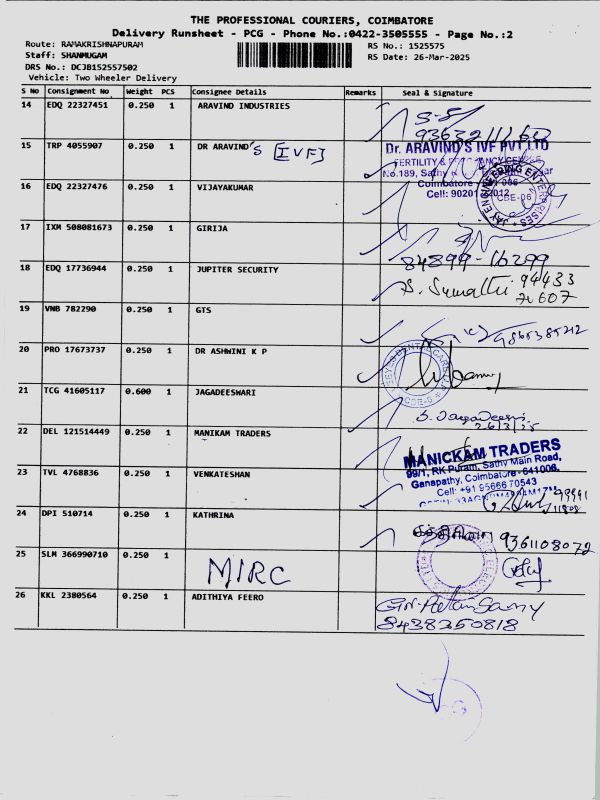 THE PROFESSIONAL COURIERS, COIMBATORE
Delivery Runsheet - PCG - Phone No.:0422-3505555 - Page No.:2
Route: RAMAKRISHNAPURAM
Staff: SHANMUGAM
DRS No.: DCJB152557502
Vehicle: Two Wheeler Delivery
RS No.: 1525575
RS Date: 26-Mar-2025
S No Consignment No Weight PCS Consignee Details Remarks Seal & Signature
14 EDQ 22327451 0.250 1 ARAVIND INDUSTRIES
15 TRP 4055907 0.250 1 DR ARAVIND'S [IVF]
Dr. ARAVIND'S IVF PVT LTD
16 EDQ 22327476 0.250 1 VIJAYAKUMAR
JAY ENGINEERING ENTERPRISES
CBE-06
17 IXM 508081673 0.250 1 GIRIJA
84899-16299
18 EDQ 17736944 0.250 1 JUPITER SECURITY
S. Sumathi 94433
19 VNB 782290 0.250 1 GTS
9865385212
20 PRO 17673737 0.250 1 DR ASHWINI K P
21 TCG 41605117 0.600 1 JAGADEESWARI
26/3/25
22 DEL 121514449 0.250 1 MANIKAM TRADERS
MANICKAM TRADERS
99/1, RK Puram, Sathy Main Road,
Ganapathy, Coimbatore - 641006.
Cell: +91 95666 70543
23 TVL 4768836 0.250 1 VENKATESHAN
24 DPI 510714 0.250 1 KATHRINA
9361108072
25 SLM 366990710 0.250 1 MIRC
26 KKL 2380564 0.250 1 ADITHIYA FEERO
8438250818